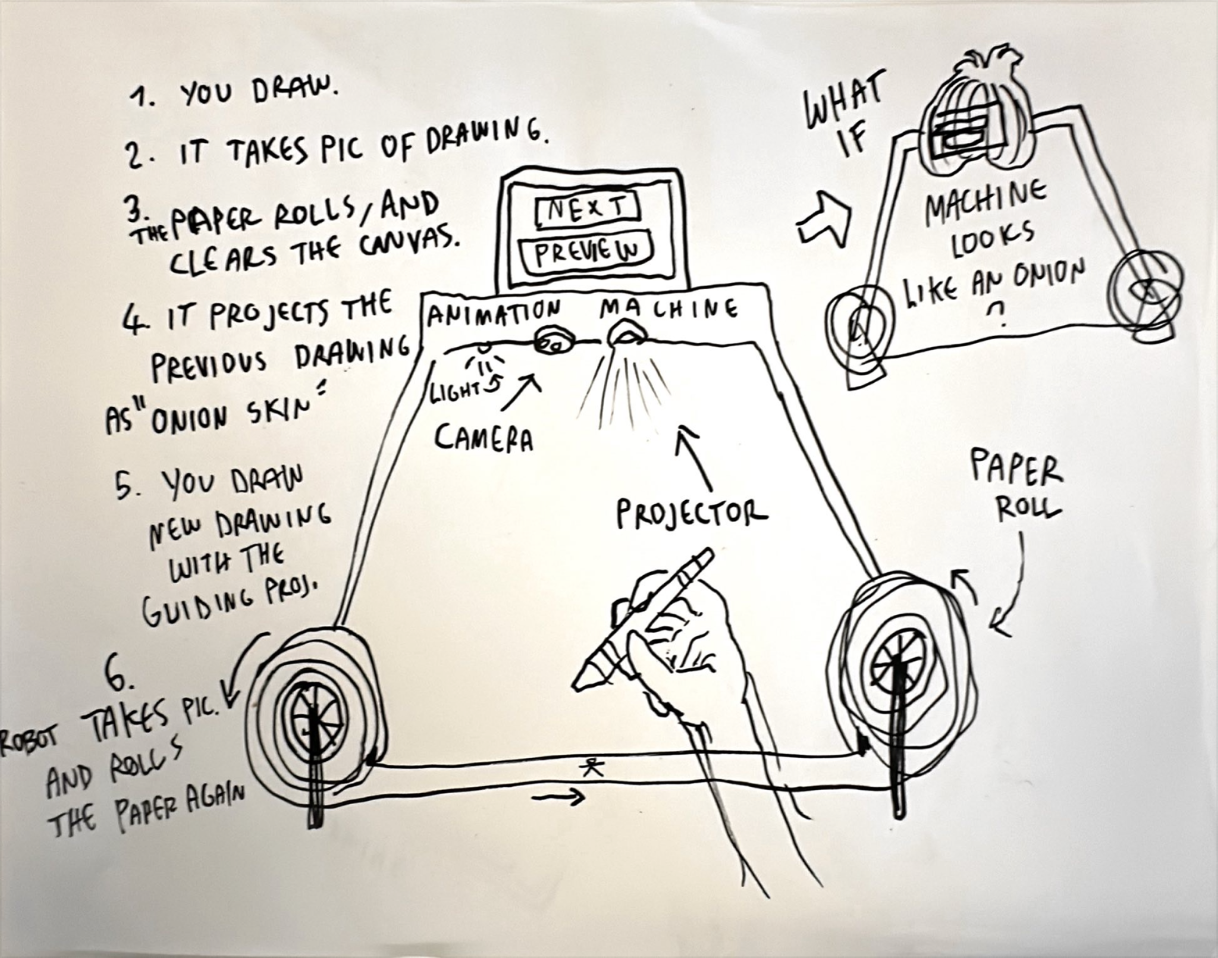 1. YOU DRAW.
2. IT TAKES PIC OF DRAWING.
3. THE PAPER ROLLS, AND
CLEARS THE CANVAS.
4. IT PROJECTS THE
PREVIOUS DRAWING
AS "ONION SKIN".
5. YOU DRAW
NEW DRAWING
WITH THE
GUIDING PROJ.
6.
ROBOT TAKES PIC.
AND ROLLS
THE PAPER AGAIN
NEXT
PREVIEW
ANIMATION MACHINE
LIGHTS
CAMERA
PROJECTOR
PAPER
ROLL
WHAT
IF
MACHINE
LOOKS
LIKE AN ONION
?